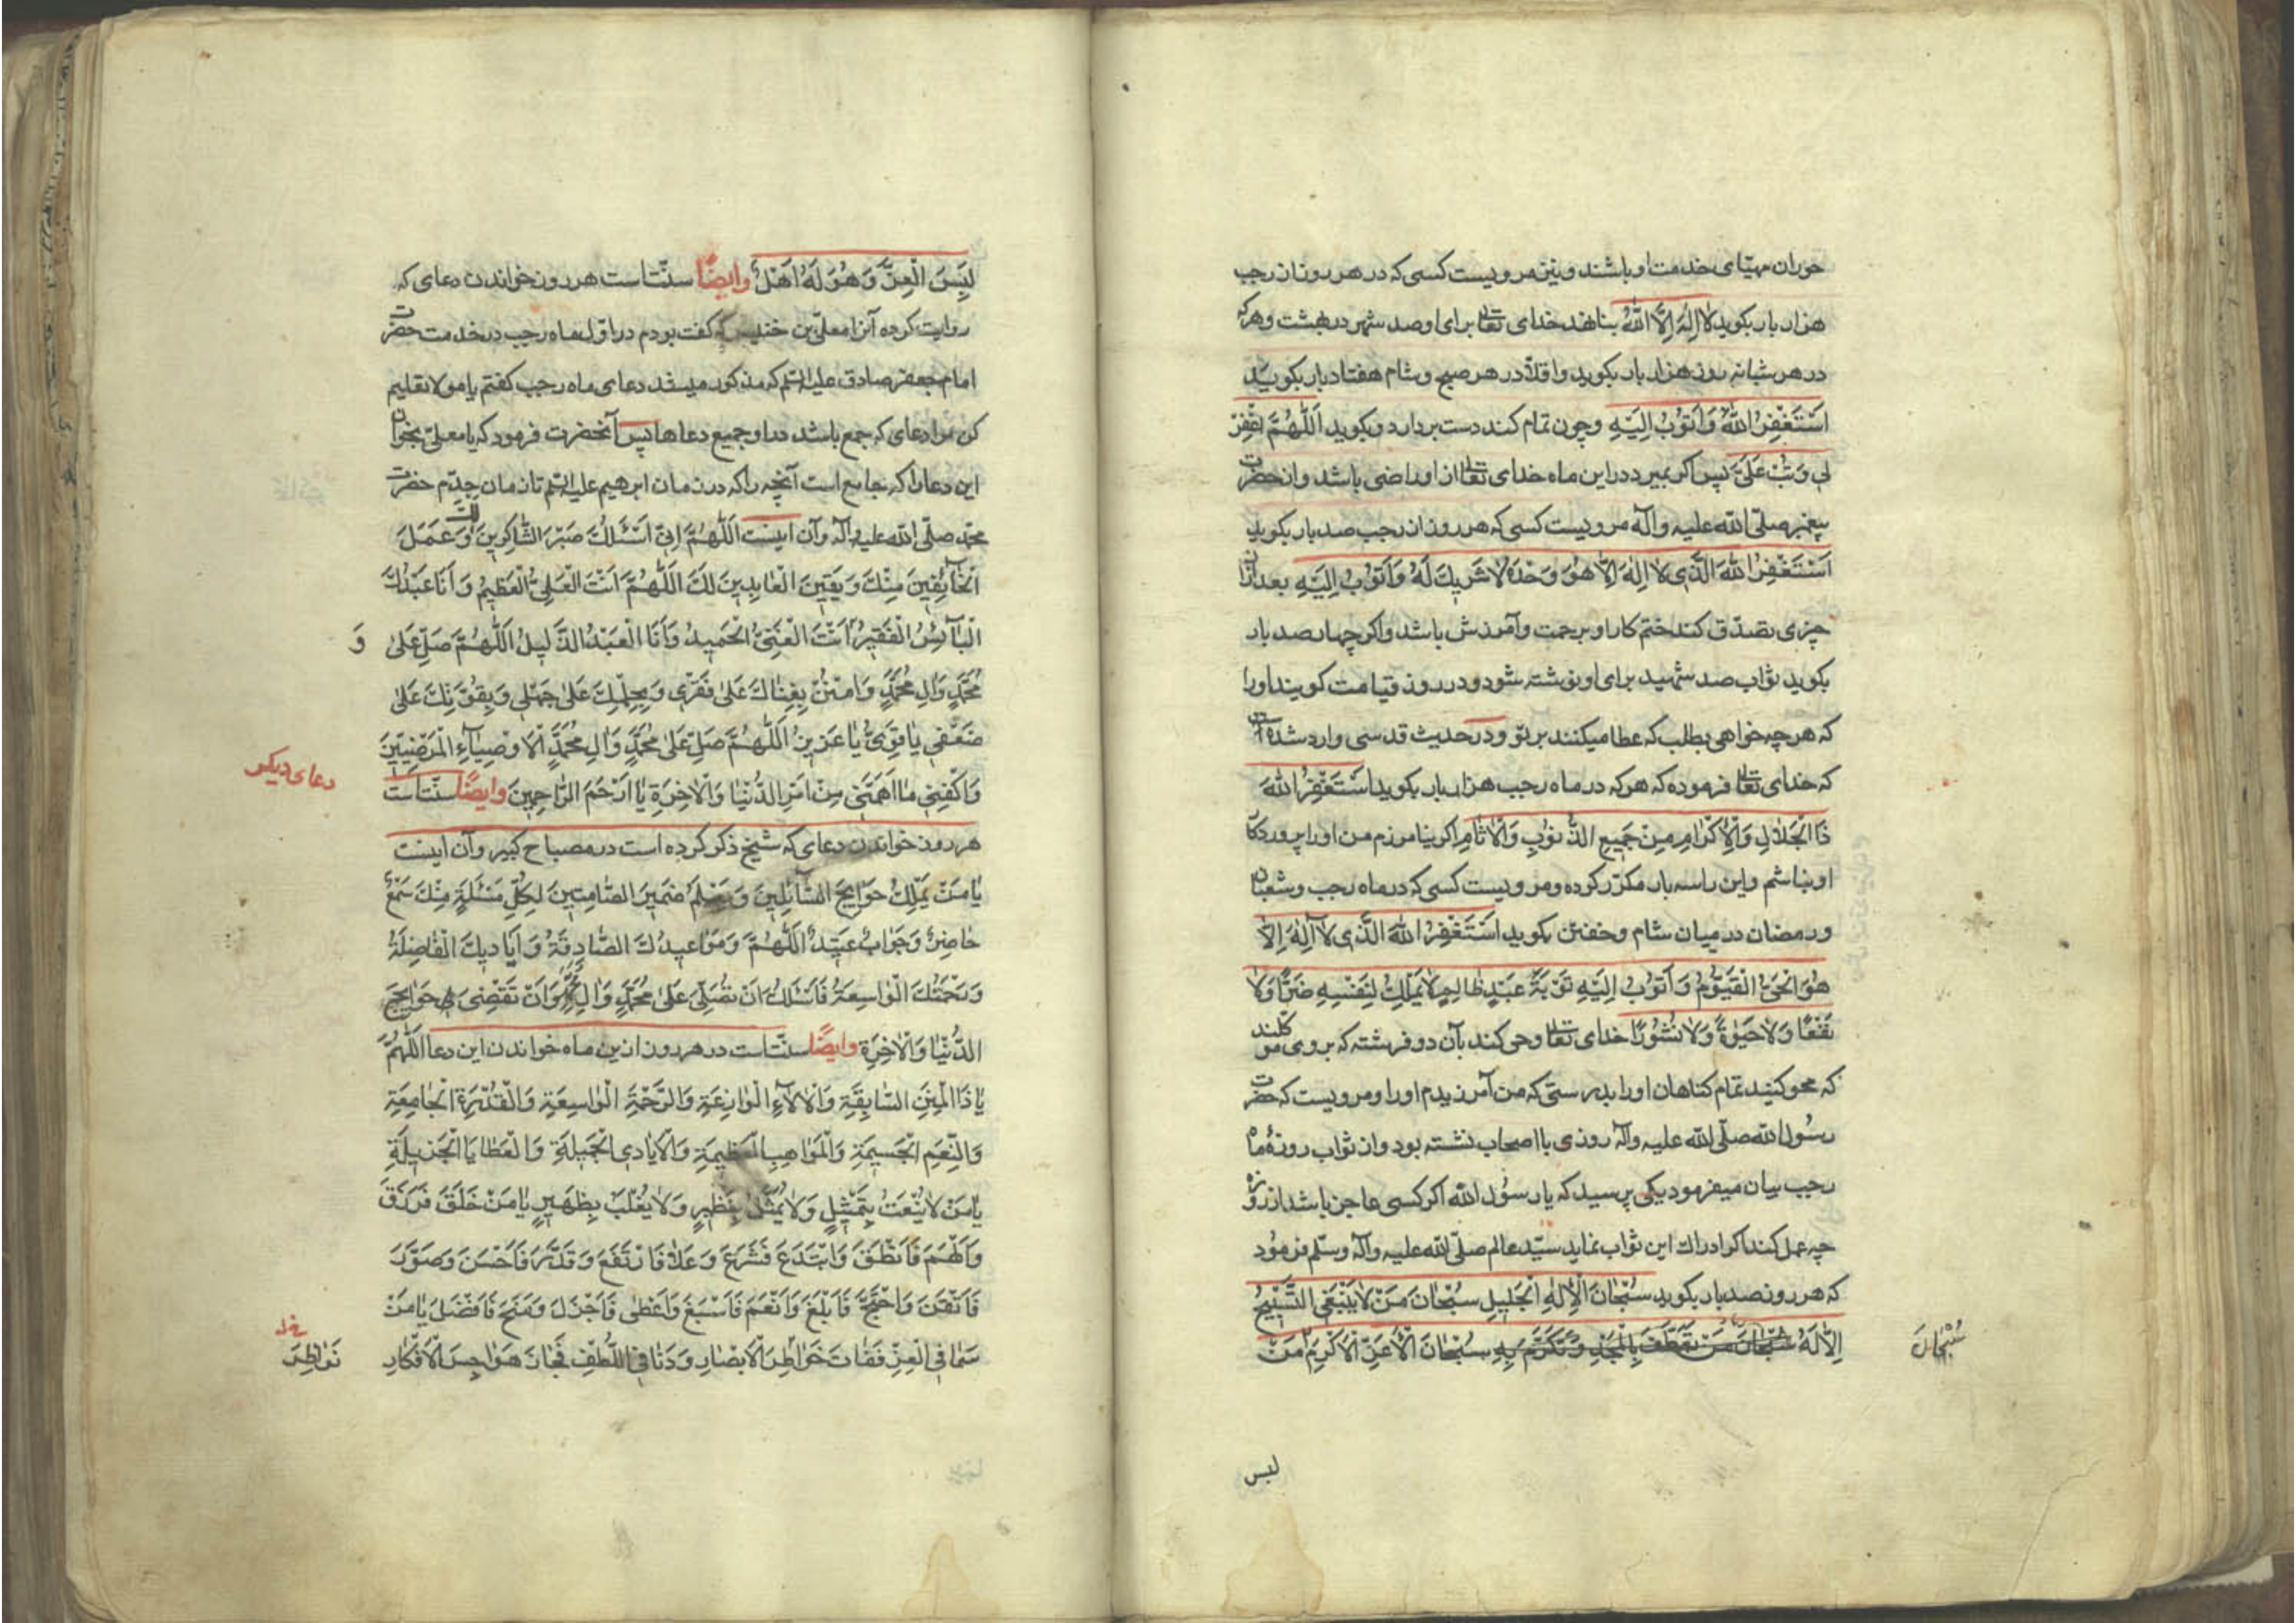 حوران مهیّای خدمت او باشند و نیز مرویست کسی که در هر روز از رجب
هزار بار بکوید لا اِلٰهَ اِلَّا اللّٰهُ بنا نهد خدای تعالی برای او صد شهر در بهشت و هرکه
در هر شبانه روز هزار بار بکوید و اقلاً در هر صبح و شام هفتاد بار بکوید
اَسْتَغْفِرُ اللّٰهَ وَ اَتُوبُ اِلَیْهِ و چون تمام کند دست بردارد و بکوید اَللّٰهُمَّ اغْفِرْ
لی وَ تُبْ عَلَیَّ پس اکر بمیرد در این ماه خدای تعالی از او راضی باشد و از حضرت
پیغمبر صلّی اللّه علیه و آله مرویست کسی که هر روز از رجب صد بار بکوید
اَسْتَغْفِرُ اللّٰهَ الَّذی لا اِلٰهَ اِلّا هُوَ وَحْدَهُ لا شَریكَ لَهُ وَ اَتُوبُ اِلَیْهِ بعد از آن
چیزی تصدّق کند ختم کار او برحمت و آمرزش باشد و اکر چهار صد بار
بکوید ثواب صد شهید برای او نوشته شود و در روز قیامت کویند او را
که هر چه خواهی بطلب که عطا میکنند بر تو و در حدیث قدسی وارد شده است
که خدای تعالی فرموده که هر که در ماه رجب هزار بار بکوید اَسْتَغْفِرُ اللّٰهَ
ذَا الْجَلالِ وَ الْاِکْرامِ مِنْ جَمیعِ الذُّنُوبِ وَ الْاٰثامِ اکر نیامرزم من او را پروردکار
او نباشم و این را سه بار مکرّر کرده و مرویست کسی که در ماه رجب و شعبان
و رمضان در میان شام و خفتن بکوید اَسْتَغْفِرُ اللّٰهَ الَّذی لا اِلٰهَ اِلّا
هُوَ الْحَیُّ الْقَیُّومُ وَ اَتُوبُ اِلَیْهِ تَوْبَةَ عَبْدٍ ظالِمٍ لا یَمْلِكُ لِنَفْسِهِ ضَرًّا وَ لا
نَفْعًا وَ لا حَیٰوةً وَ لا نُشُورًا خدای تعالی وحی کند بآن دو فرشته که بر وی موکلند
که محو کنید تمام کناهان او را بدرستی که من آمرزیدم او را و مرویست که حضرت
رسول اللّه صلّی اللّه علیه و آله روزی با اصحاب نشسته بود و از ثواب روزهٔ ماه
رجب بیان میفرمود یکی پرسید که یا رسول اللّه اکر کسی عاجز باشد از روزه
چه عمل کند تا که ادراك این ثواب نماید سیّد عالم صلّی اللّه علیه و آله و سلّم فرمود
که هر روز صد بار بکوید سُبْحانَ الْاِلٰهِ الْجَلیلِ سُبْحانَ مَنْ لا یَنْبَغی التَّسْبیحُ
اِلّا لَهُ سُبْحانَ مَنْ تَعَطَّفَ بِالْمَجْدِ وَ تَکَرَّمَ بِهِ سُبْحانَ الْاَعَزِّ الْاَکْرَمِ مَنْ
سُبْحانَ
لبس
لَبِسَ الْعِزَّ وَ هُوَ لَهُ اَهْلٌ وایضًا سنّتاست هر روز خواندن دعای که
روایت کرده آنرا معلّی بن خنیس که کفت بودم در اوّل ماه رجب در خدمت حضرت
امام جعفر صادق علیه السّلم که مذکور میشد دعای ماه رجب کفتم یا مولا تعلیم
کن مرا دعای که جمع باشد در او جمیع دعاها پس آنحضرت فرمود که یا معلّی بخوان
این دعا را که جامع است آنچه را که در زمان ابرهیم علیه السّلم تا زمان جدّم حضرت
محمّد صلّی اللّه علیه و آله و آن اینست اَللّٰهُمَّ اِنّی اَسْئَلُكَ صَبْرَ الشّاکِرینَ لَكَ وَ عَمَلَ
الْخآئِفینَ مِنْكَ وَ یَقینَ الْعابِدینَ لَكَ اَللّٰهُمَّ اَنْتَ الْعَلِیُّ الْعَظیمُ وَ اَنَا عَبْدُكَ
الْبآئِسُ الْفَقیرُ اَنْتَ الْغَنِیُّ الْحَمیدُ وَ اَنَا الْعَبْدُ الذَّلیلُ اَللّٰهُمَّ صَلِّ عَلیٰ
وَ
مُحَمَّدٍ وَ اٰلِ مُحَمَّدٍ وَ امْنُنْ بِغِناكَ عَلیٰ فَقْری وَ بِحِلْمِكَ عَلیٰ جَهْلی وَ بِقُوَّتِكَ عَلیٰ
ضَعْفی یا قَوِیُّ یا عَزیزُ اَللّٰهُمَّ صَلِّ عَلیٰ مُحَمَّدٍ وَ اٰلِ مُحَمَّدٍ الْاَوْصِیآءِ الْمَرْضِیّینَ
دعای دیکر
وَ اکْفِنی ما اَهَمَّنی مِنْ اَمْرِ الدُّنْیا وَ الْاٰخِرَةِ یا اَرْحَمَ الرّاحِمینَ وایضًا سنّتاست
هر روز خواندن دعای که شیخ ذکر کرده است در مصباح کبیر و آن اینست
یا مَنْ یَمْلِكُ حَوآئِجَ السّآئِلینَ وَ یَعْلَمُ ضَمیرَ الصّامِتینَ لِکُلِّ مَسْئَلَةٍ مِنْكَ سَمْعٌ
حاضِرٌ وَ جَوابٌ عَتیدٌ اَللّٰهُمَّ وَ مَواعیدُكَ الصّادِقَةُ وَ اَیادیكَ الْفاضِلَةُ
وَ رَحْمَتُكَ الْواسِعَةُ فَاَسْئَلُكَ اَنْ تُصَلِّیَ عَلیٰ مُحَمَّدٍ وَ اٰلِ مُحَمَّدٍ وَ اَنْ تَقْضِیَ لی حَوآئِجَ
الدُّنْیا وَ الْاٰخِرَةِ وایضًا سنّتاست در هر روز از این ماه خواندن این دعا اَللّٰهُمَّ
یا ذَا الْمِنَنِ السّابِقَةِ وَ الْاٰلآءِ الْوازِعَةِ وَ الرَّحْمَةِ الْواسِعَةِ وَ الْقُدْرَةِ الْجامِعَةِ
وَ النِّعَمِ الْجَسیمَةِ وَ الْمَواهِبِ الْعَظیمَةِ وَ الْاَیادِی الْجَمیلَةِ وَ الْعَطایا الْجَزیلَةِ
یا مَنْ لا یُنْعَتُ بِتَمْثیلٍ وَ لا یُمَثَّلُ بِنَظیرٍ وَ لا یُغْلَبُ بِظَهیرٍ یا مَنْ خَلَقَ فَرَزَقَ
وَ اَلْهَمَ فَاَنْطَقَ وَ ابْتَدَعَ فَشَرَعَ وَ عَلا فَارْتَفَعَ وَ قَدَّرَ فَاَحْسَنَ وَ صَوَّرَ
فَاَتْقَنَ وَ احْتَجَّ فَاَبْلَغَ وَ اَنْعَمَ فَاَسْبَغَ وَ اَعْطیٰ فَاَجْزَلَ وَ مَنَحَ فَاَفْضَلَ یا مَنْ
سَما فِی الْعِزِّ فَفاتَ خَواطِرَ الْاَبْصارِ وَ دَنا فِی اللُّطْفِ فَجازَ هَواجِسَ الْاَفْکارِ
نَواظِرَ